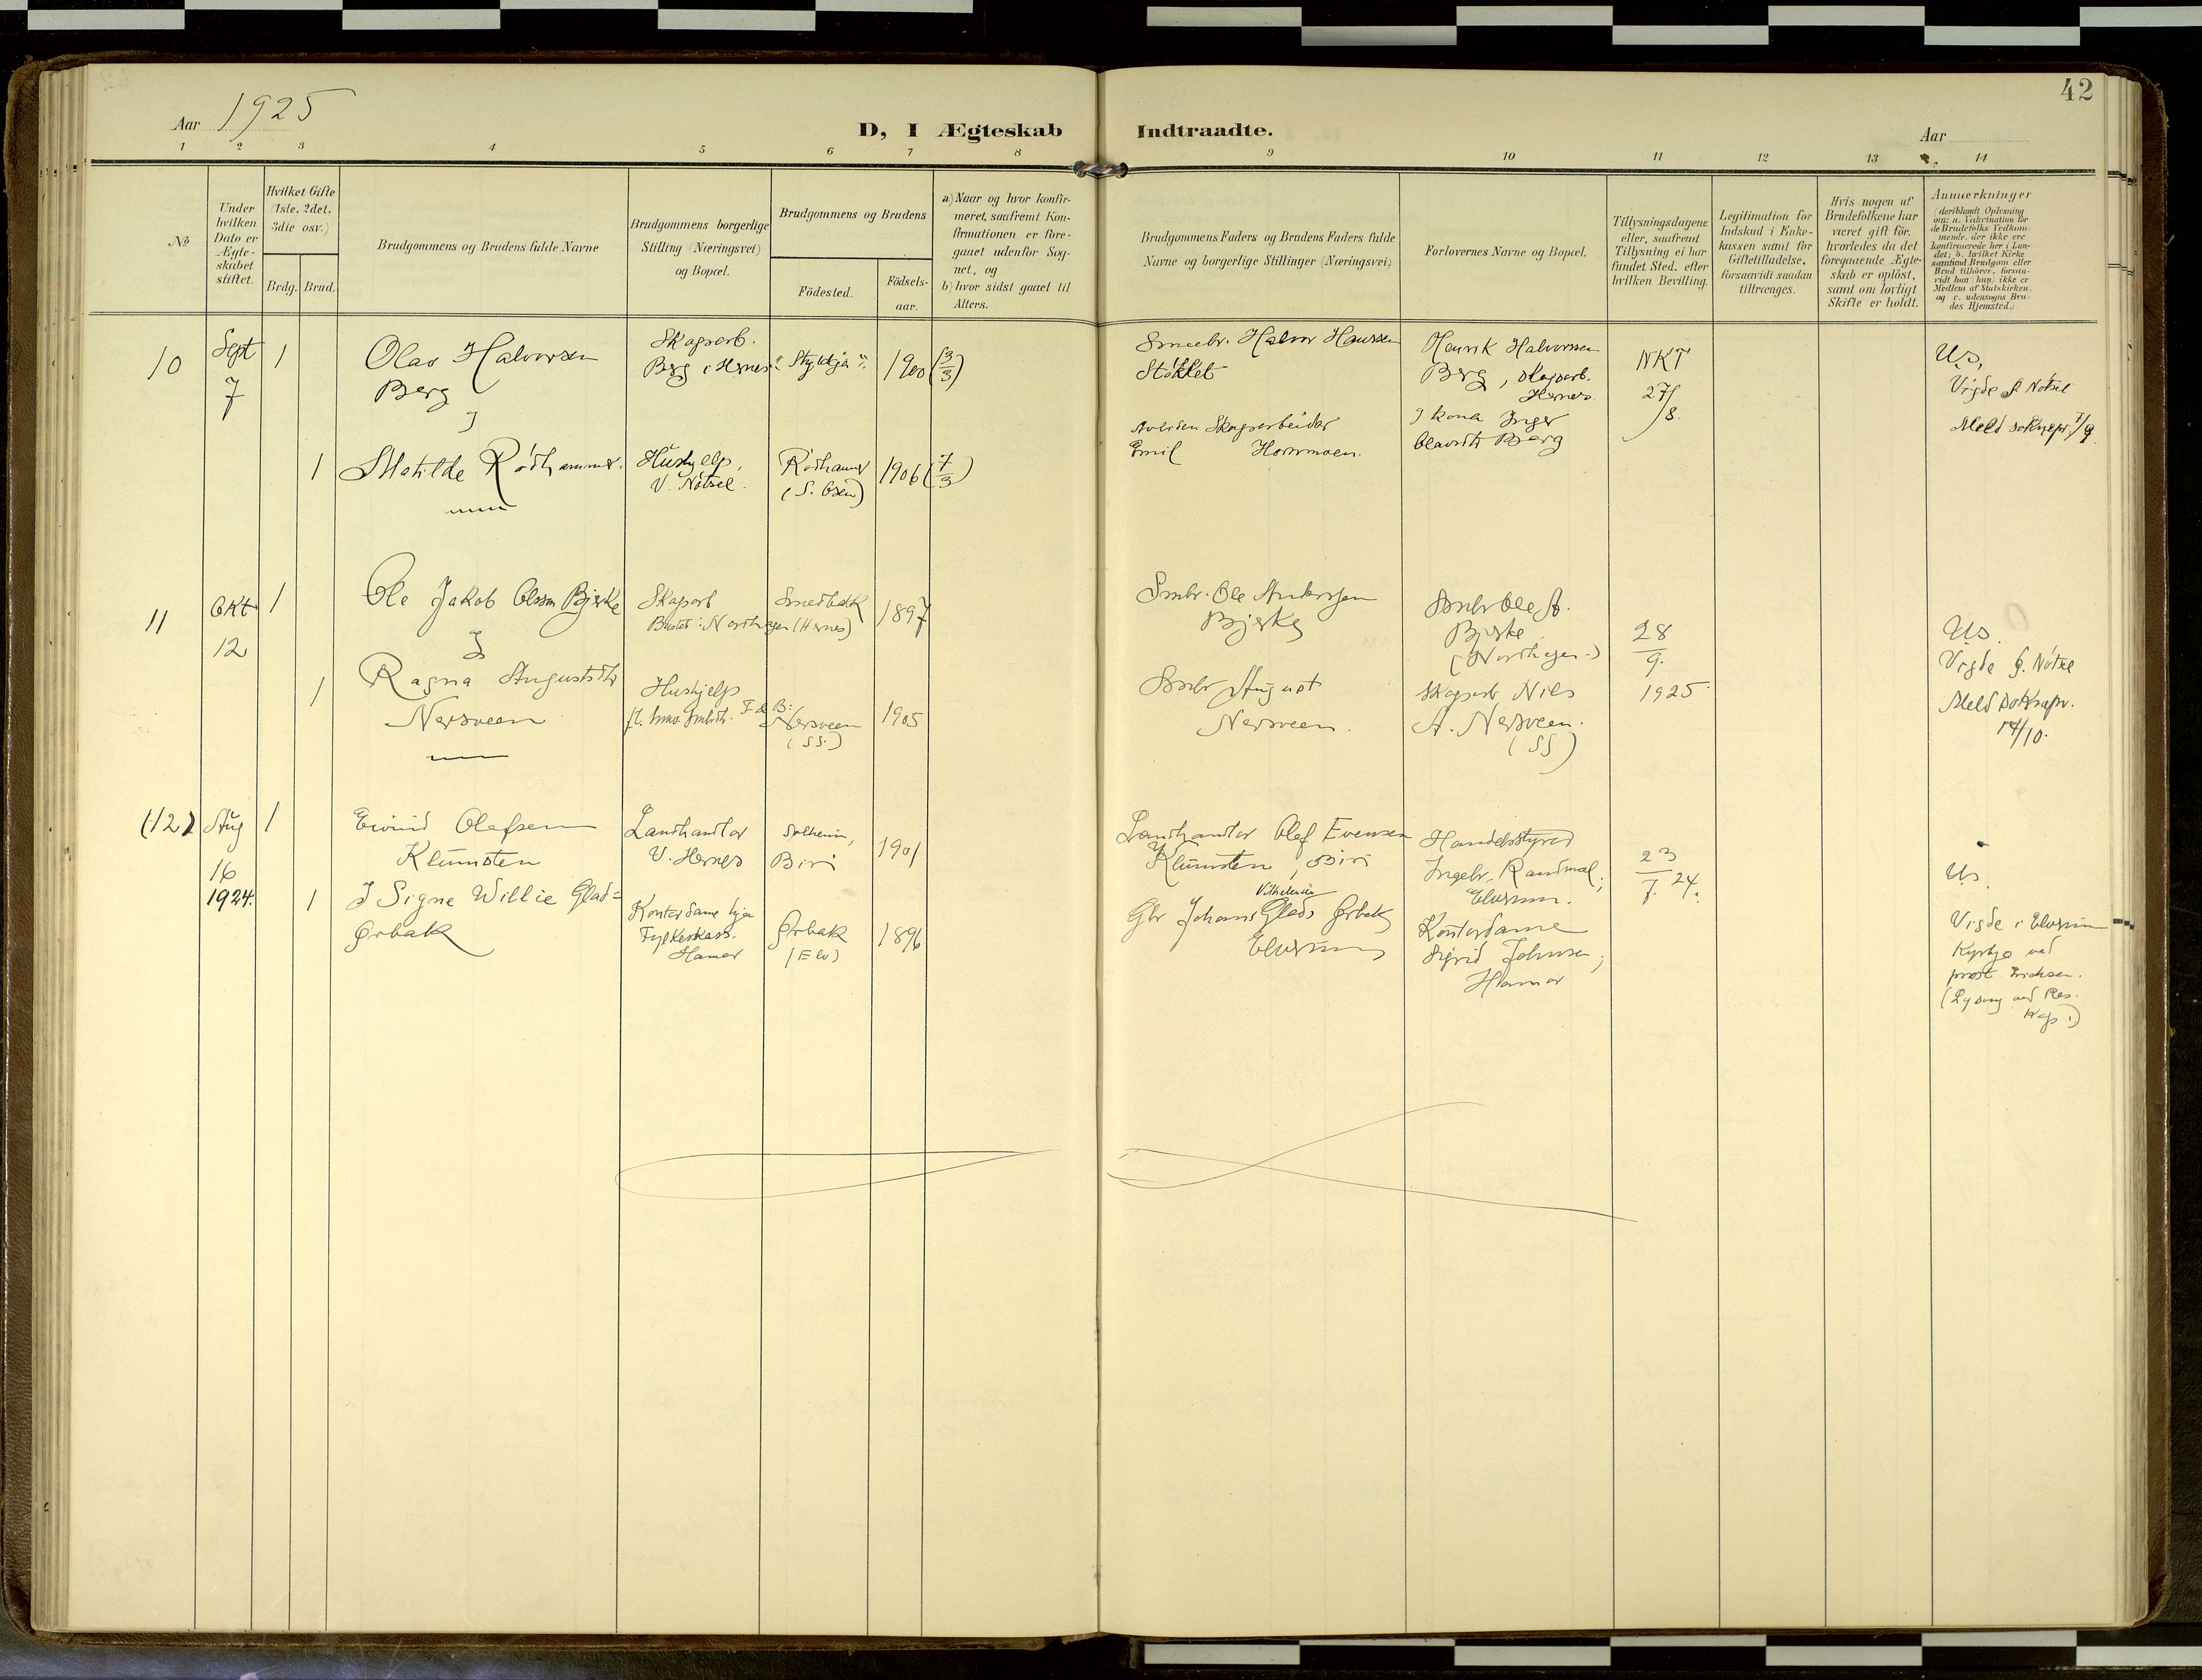 42
Aar 1925
D, I Ægteskab Indtraadte.
Aar
1 2 3 4 5 6 7 8 9 10 11 12 13 14
No
Under hvilken Dato er Ægteskabet stiftet.
Hvilket Gifte (1ste, 2det, 3die osv.)
Brdg. Brud.
Brudgommens og Brudens fulde Navne
Brudgommens borgerlige Stilling (Næringsvei) og Bopæl.
Brudgommens og Brudens
Födested.
Födsels-aar.
a) Naar og hvor konfirmeret, saafremt Konfirmationen er foregaaet udenfor Sognet, og
b) hvor sidst gaaet til Alters.
Brudgommens Faders og Brudens Faders fulde Navne og borgerlige Stillinger (Næringsvei)
Forlovernes Navne og Bopæl.
Tillysningsdagene eller, saafremt Tillysning ei har fundet Sted, efter hvilken Bevilling.
Legitimation for Indskud i Enkekassen samt for Giftetilladelse, forsaavidt saadan tiltrænges.
Hvis nogen af Brudefolkene har været gift för, hvorledes da det foregaaende Ægteskab er oplöst, samt om lovligt Skifte er holdt.
Anmærkninger
(deriblandt Oplysning om: a. Vakcination for de Brudefolks Vedkommende, der ikke ere konfirmerede her i Landet; b. hvilket Kirkesamfund Brudgom eller Brud tilhører, forsaavidt han (hun) ikke er Medlem af Statskirken, og c. udensogns Brudes Hjemsted.)
10
Sept
7
1
Olav Halvorsen
Berg
Skogsarb.
Berg i Hernes
1900 (3/3)
Halvor Hanssen
Støkket
Henrik Halvorsen
Berg, skogsarb.
Hernes
NKT
27/8.
Us,
Vigde f. Nötsel
Meld soknepr. 7/9.
og
1
Matilde Rödhammer.
Hushjelp,
V. Nötsel.
Rödhammer
(S. Osen)
1906 (7/3)
Skogsarbeider
Emil
og kona Inger
Olavsdtr Berg
11
Okt
12
1
Ole Jakob Olsen Bjerke
Skogsarb
(Hernes)
1897
Smbr. Ole Andersen
Bjerke
Smbr Ole A.
Bjerke
(Northagen)
28/9.
1925
Us.
Vigde f. Nötsel
Meld soknepr.
14/10.
og
1
Ragna Augustdtr
Nersveen
Hushjelp
F. og B:
Nersveen
(SS.)
1905
Smbr August
Nersveen.
Skogsarb Nils
A. Nersveen.
(SS)
(12)
Aug
16
1924.
1
Eivind Olafsen
Klumsten
Landhandlar
V. Hernes
Solheim,
Biri
1901
Landhandlar Olaf Evensen
Klumsten, Biri
Handelsstyred
Ingebr. Randmæl;
Elverum.
23/7. 24.
Us.
1
og Signe Willie Glad=
Ørbak
Kontordame hja
Fylkeskass.
Hamar
Ørbak
(Elv)
1896
Gbr Johans Vilhelmsen Glads Ørbak
Elverum
Kontordame
Sigrid Johnsen;
Hamar
Vigde i Elverum
Kyrkje ved
prost Erichsen.
(Lysing ved Res.
Kap.)